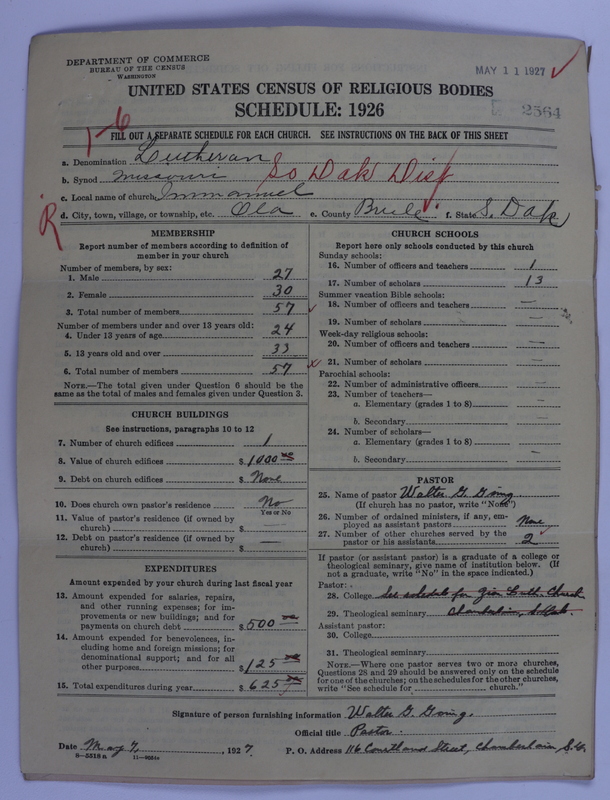 DEPARTMENT OF COMMERCE
BUREAU OF THE CENSUS
WASHINGTON
MAY 11 1927
UNITED STATES CENSUS OF RELIGIOUS BODIES
SCHEDULE: 1926
2564
1-6
FILL OUT A SEPARATE SCHEDULE FOR EACH CHURCH. SEE INSTRUCTIONS ON THE BACK OF THIS SHEET
a. Denomination Lutheran
b. Synod Missouri So Dak Dist
c. Local name of church Immanuel
d. City, town, village, or township, etc. Ola e. County Brule f. State S. Dak
R
MEMBERSHIP
Report number of members according to definition of
member in your church
Number of members, by sex:
1. Male 27
2. Female 30
3. Total number of members 57
Number of members under and over 13 years old:
4. Under 13 years of age 24
5. 13 years old and over 33
6. Total number of members 57
NOTE.—The total given under Question 6 should be the
same as the total of males and females given under Question 3.
CHURCH BUILDINGS
See instructions, paragraphs 10 to 12
7. Number of church edifices 1
8. Value of church edifices $ 1000 00
9. Debt on church edifices $ None
10. Does church own pastor's residence No
Yes or No
11. Value of pastor's residence (if owned by
church) $ —
12. Debt on pastor's residence (if owned by
church) $ —
EXPENDITURES
Amount expended by your church during last fiscal year
13. Amount expended for salaries, repairs,
and other running expenses; for im-
provements or new buildings; and for
payments on church debt $ 500 00
14. Amount expended for benevolences, in-
cluding home and foreign missions; for
denominational support; and for all
other purposes $ 125 00
15. Total expenditures during year $ 625 00
CHURCH SCHOOLS
Report here only schools conducted by this church
Sunday schools:
16. Number of officers and teachers 1
17. Number of scholars 13
Summer vacation Bible schools:
18. Number of officers and teachers —
19. Number of scholars —
Week-day religious schools:
20. Number of officers and teachers —
21. Number of scholars —
Parochial schools:
22. Number of administrative officers —
23. Number of teachers—
a. Elementary (grades 1 to 8) —
b. Secondary —
24. Number of scholars—
a. Elementary (grades 1 to 8) —
b. Secondary —
PASTOR
25. Name of pastor Walter G.
(If church has no pastor, write "None")
26. Number of ordained ministers, if any, em-
ployed as assistant pastors None
27. Number of other churches served by the
pastor or his assistants 2
If pastor (or assistant pastor) is a graduate of a college or
theological seminary, give name of institution below. (If
not a graduate, write "No" in the space indicated.)
Pastor:
28. College See schedule for Zion Luth. Church
29. Theological seminary Chamberlain, S. Dak.
Assistant pastor:
30. College
31. Theological seminary
NOTE.—Where one pastor serves two or more churches,
Questions 28 and 29 should be answered only on the schedule
for one of the churches; on the schedules for the other churches,
write "See schedule for church."
Signature of person furnishing information Walter G.
Official title Pastor
Date May 7, 1927. P. O. Address 116 Courtland Street, Chamberlain, S. D.
8-5518a 11-9034a